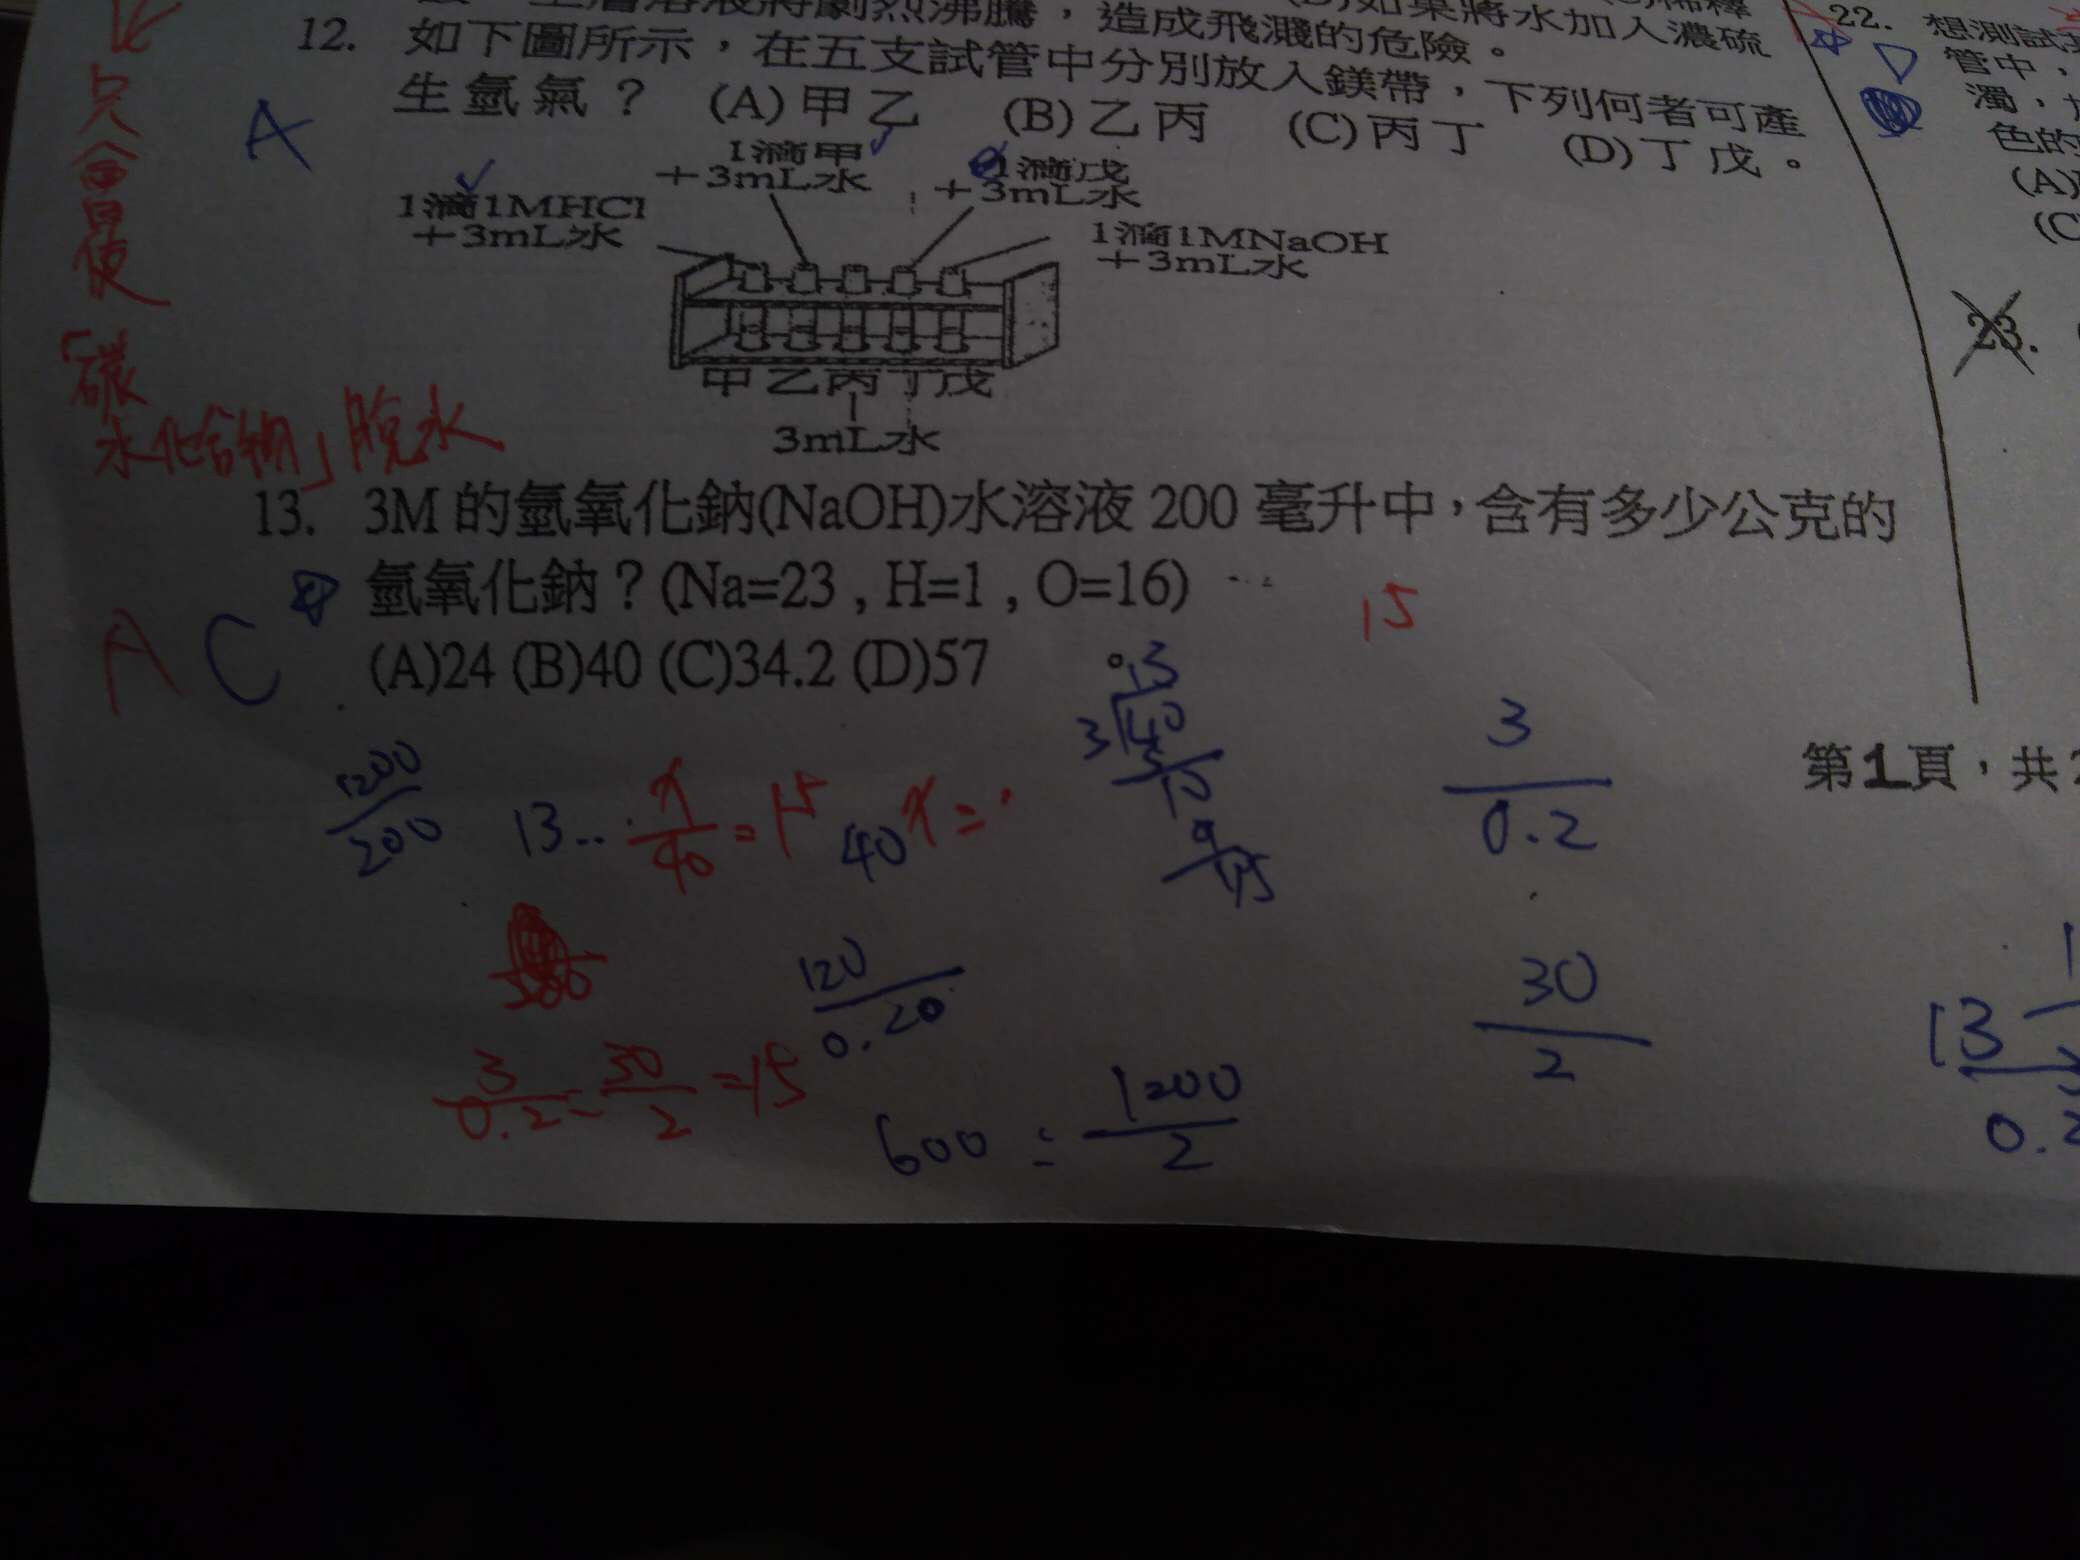 上層溶液將劇烈沸騰，造成飛濺的危險。
(D)如果將水加入濃硫
稀釋
12. 如下圖所示，在五支試管中分別放入鎂帶，下列何者可產
生氫氣？ (A)甲乙 (B)乙丙 (C)丙丁 (D)丁戊。
A
1滴甲
+3mL水
1滴戊
+3mL水
1滴1MHCl
+3mL水
1滴1MNaOH
+3mL水
甲乙丙丁戊
3mL水
只會使
「碳
水化合物」脫水
13. 3M 的氫氧化鈉(NaOH)水溶液 200 毫升中，含有多少公克的
氫氧化鈉？(Na=23 , H=1 , O=16)
15
A C
(A)24 (B)40 (C)34.2 (D)57
3
0.2
1200
200
13...
x
40
=15
40
x=
120
0.20
3
0.2
=
30
2
=15
600 =
1200
2
30
2
第1頁，共
22. 想測試
管中，
濁，
色的
(A)
(C
23.
13